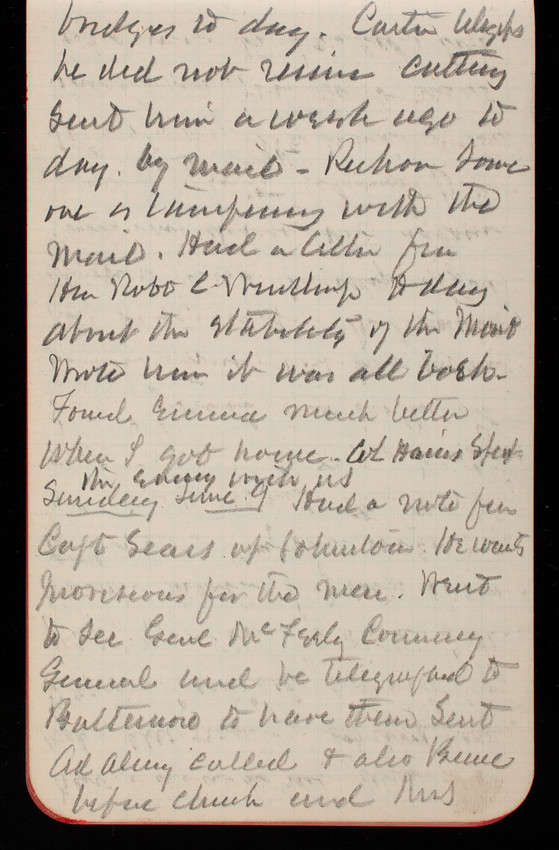 bridges to day. Carter telegphs
he did not receive cutting
Sent him a week ago to
day. by mail - Reckon some
one is tampering with the
mail. Had a letter fm
Hon Robt C Winthrop to day
about the stability of the Mont
Wrote him it was all bosh -
Found Emma much better
when I got home - Col Hains Spent
the Evening with us
Sunday June 9 Had a note fm
Capt Sears up Johnstown. He wants
provisions for the men. Went
to see Genl McFeely Commsy
General and he telegraphed to
Baltimore to have them Sent
called & also
before church and Mrs